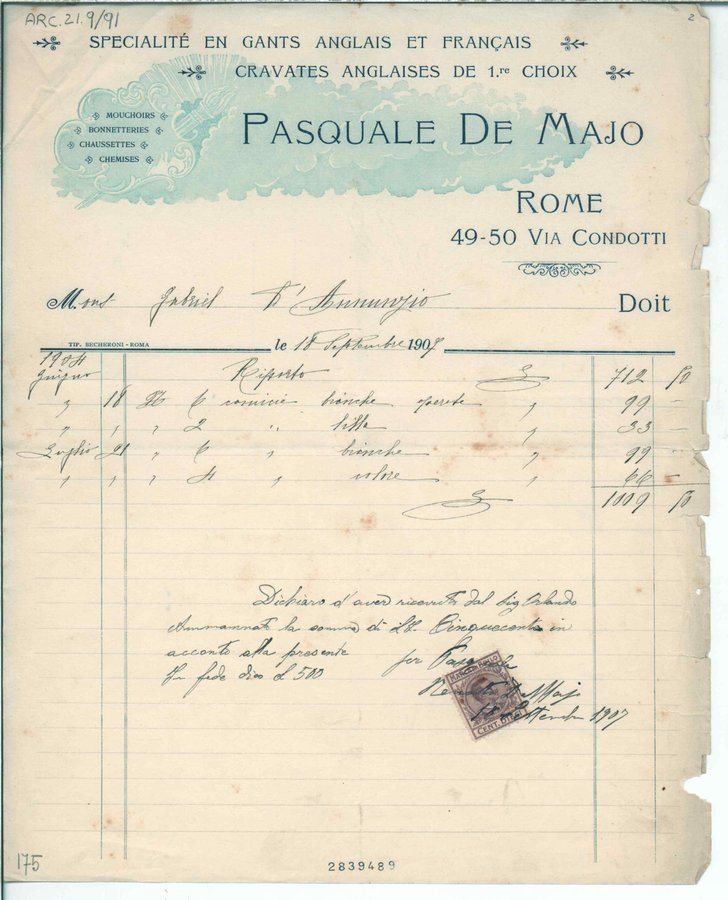 ARC. 21.9/91
2
SPECIALITÉ EN GANTS ANGLAIS ET FRANÇAIS
CRAVATES ANGLAISES DE 1.re CHOIX
MOUCHOIRS
BONNETTERIES
CHAUSSETTES
CHEMISES
PASQUALE DE MAJO
ROME
49-50 VIA CONDOTTI
Mons Gabriel D'Annunzio Doit
TIP. BECHERONI-ROMA
le 18 Septembre 1907
1904
Giugno Riporto £ 712 50
" 18 N 6 camicie bianche " 99 —
" " " 2 " lilla " 33 —
Luglio 21 " 6 " bianche " 99
" " " 4 " colore " 66 —
£ 1009 50
Dichiaro d'aver ricevuto dal Sig Orlando
Ammannati la somma di L. Cinquecento in
acconto alla presente
In fede dico L 500
per Pasquale
De Majo
18 Settembre 1907
MARCA DA BOLLO
CENT. DIECI
175
2839489